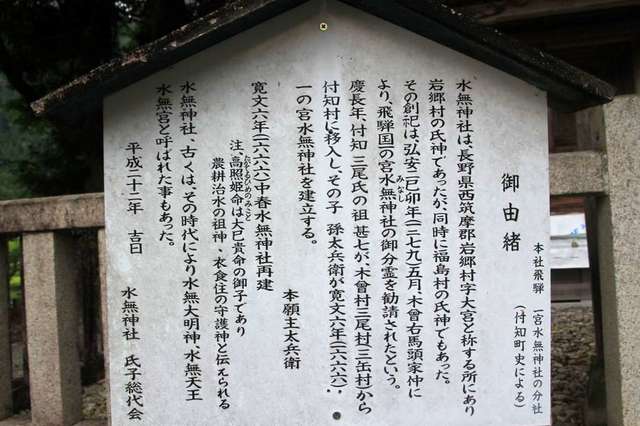 御由緒
本社飛騨 一宮水無神社の分社
(付知町史による)
水無神社は、長野県西筑摩郡岩郷村字大宮と称する所にあり
岩郷村の氏神であったが、同時に福島村の氏神でもあった。
その創祀は、弘安二己卯年(一二七九)五月、木曾右馬頭家仲に
より、飛騨国一の宮水無神社の御分霊を勧請されたという。
みなし
慶長年、付知 三尾氏の祖 甚七が、木曾村三尾村三岳村から
付知村に移入し、その子 孫太兵衛が寛文六年(一六六六)、
一の宮水無神社を建立する。
本願主太兵衛
寛文六年(一六六六)中春水無神社再建
注、高照姫命は大己貴命の御子であり
たかてるひめのみこと
農耕治水の祖神、衣食住の守護神と伝えられる
水無神社、古くは、その時代により水無大明神、水無天王
水無宮と呼ばれた事もあった。
平成二十二年 吉日
水無神社 氏子総代会